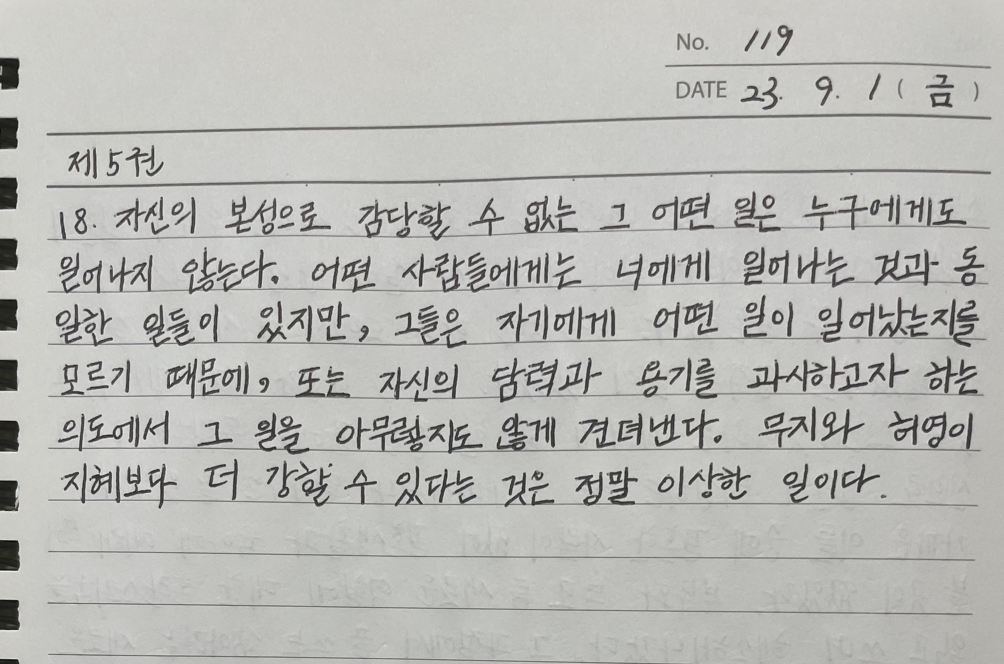 No. 119
DATE 23. 9. 1 ( 금 )
제5권
18. 자신의 본성으로 감당할 수 없는 그 어떤 일은 누구에게도
일어나지 않는다. 어떤 사람들에게는 너에게 일어나는 것과 동
일한 일들이 있지만, 그들은 자기에게 어떤 일이 일어났는지를
모르기 때문에, 또는 자신의 담력과 용기를 과시하고자 하는
의도에서 그 일을 아무렇지도 않게 견뎌낸다. 무지와 허영이
지혜보다 더 강할 수 있다는 것은 정말 이상한 일이다.